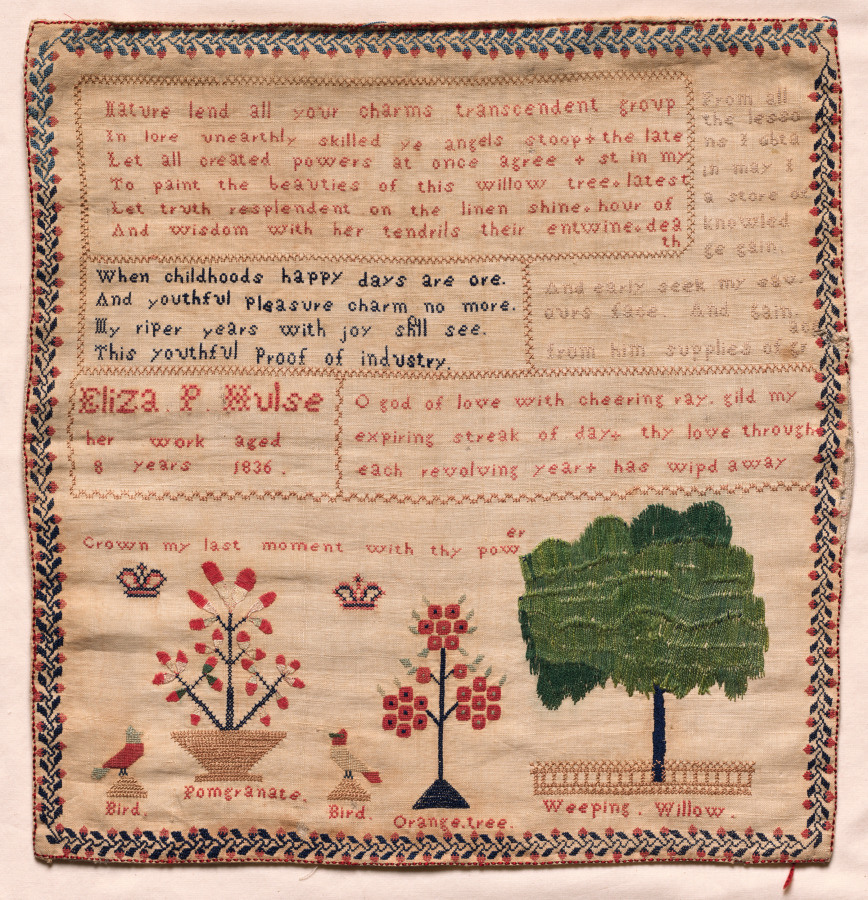 Nature lend all your charms transcendent group
In lore unearthly skilled ye angels stoop+ the late
Let all created powers at once agree + st in my
To paint the beauties of this willow tree. latest
Let truth resplendent on the linen shine. hour of
And wisdom with her tendrils their entwine. dea
th
From all
the lesso
ns I obta
in may I
a store of
knowled
ge gain.
When childhoods happy days are ore.
And youthful Pleasure charm no more.
My riper years with joy shll see.
This youthful Proof of industry.
And early seek my sav
ours face. And gain.
from him supplies of
Eliza P Hulse
her work aged
8 years 1836.
O god of love with cheering ray. gild my
expiring streak of day+ thy love through
each revolving year+ has wipd away
er
Crown my last moment with thy pow
Bird.
Pomgranate.
Bird.
Orange.tree.
Weeping. Willow.